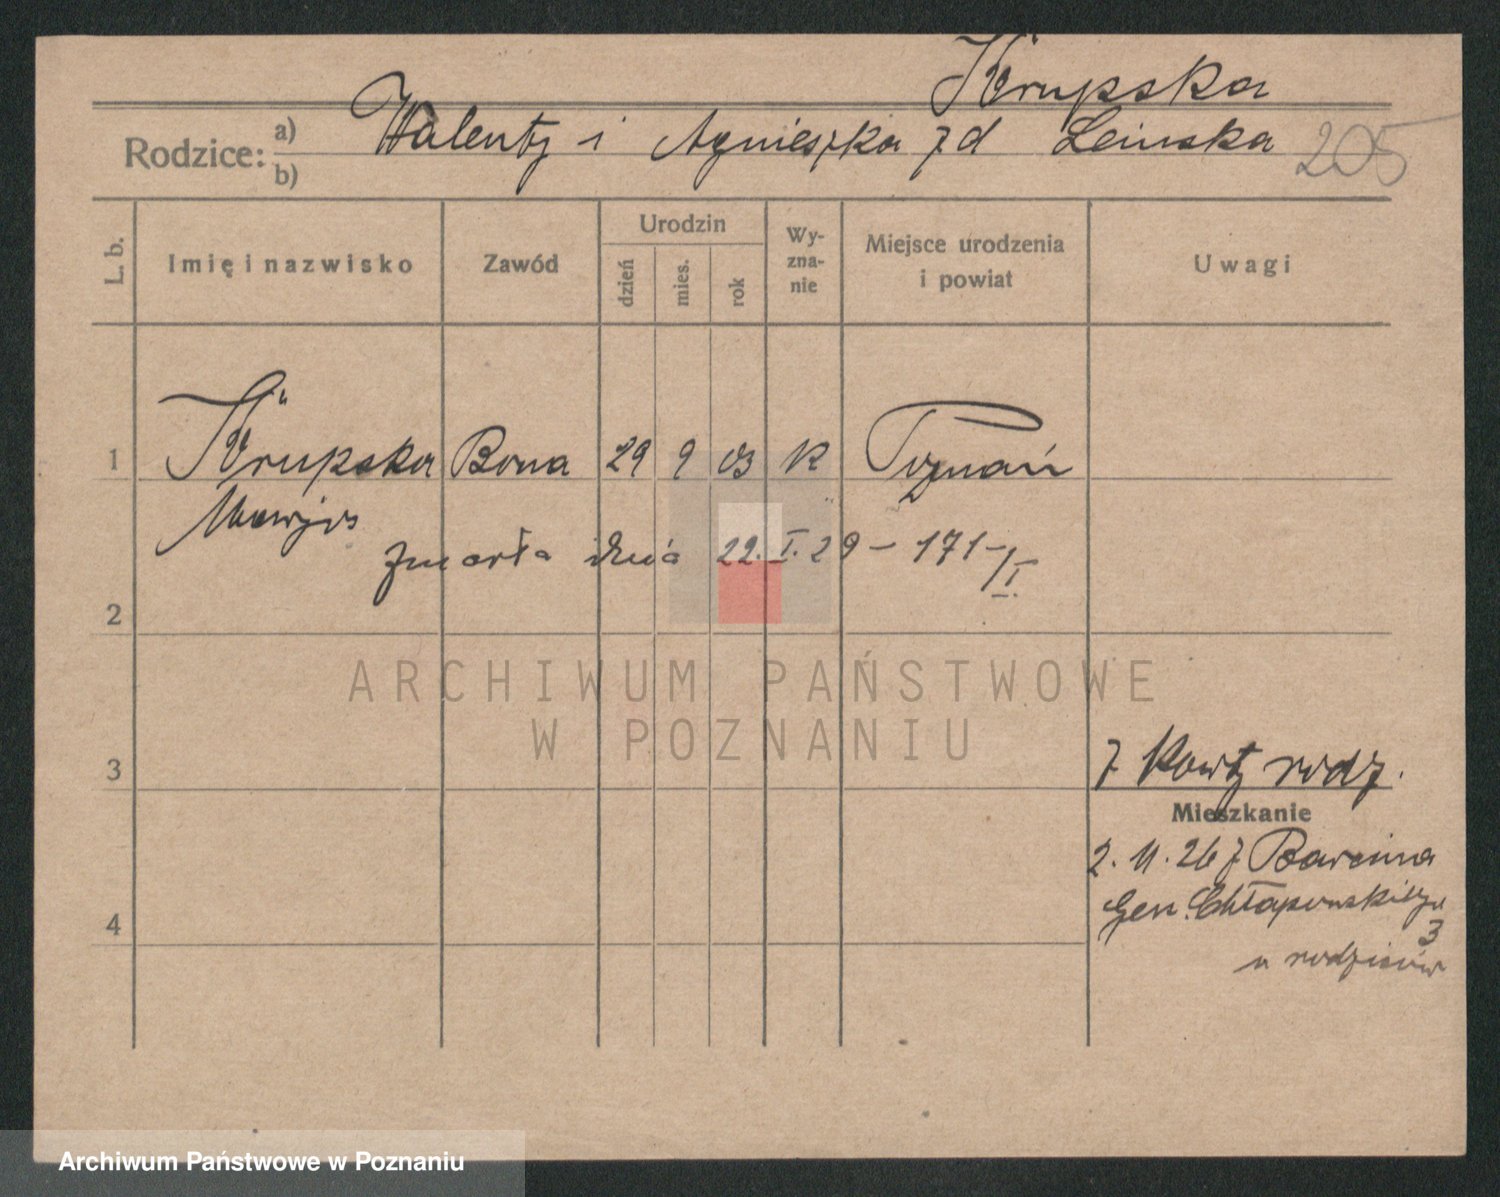 Krupska
Rodzice: a) Walenty i Agnieszka z d Leinska 205
b)
L. b. Imię i nazwisko Zawód Urodzin dzień mies. rok Wy-zna-nie Miejsce urodzenia i powiat Uwagi
1 Krupska Bona 29 9 03 K Poznań
Maryja
zmarła dnia 22. I. 29 - 171-/I.
2
ARCHIWUM PAŃSTWOWE
W POZNANIU
3 z Karty rodz.
Mieszkanie
2. 11. 26 z Barcina
Gen. Chłapowskiego
4 3
u rodziców
Archiwum Państwowe w Poznaniu